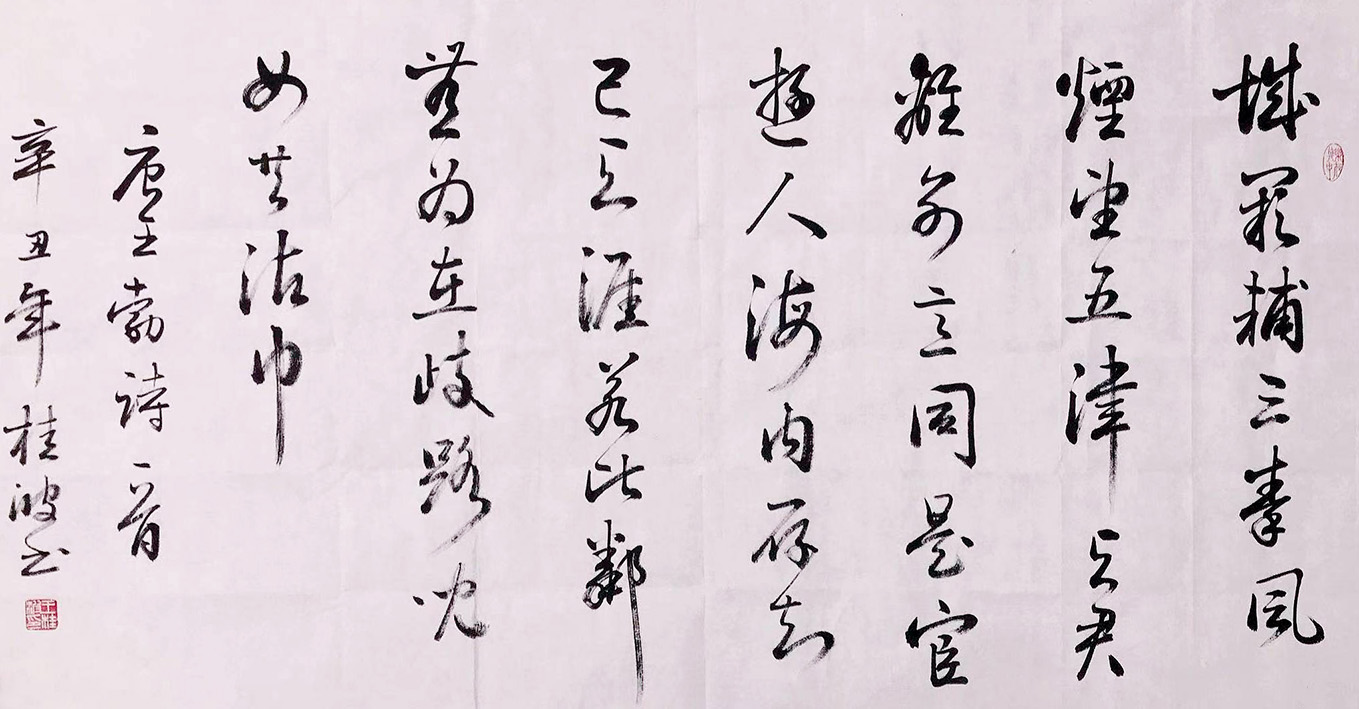 城闕輔三秦風
煙望五津与君
離別意同是宦
遊人海内存知
己天涯若比鄰
無為在歧路兒
女共沾巾
唐王勃詩一首
辛丑年桂波书